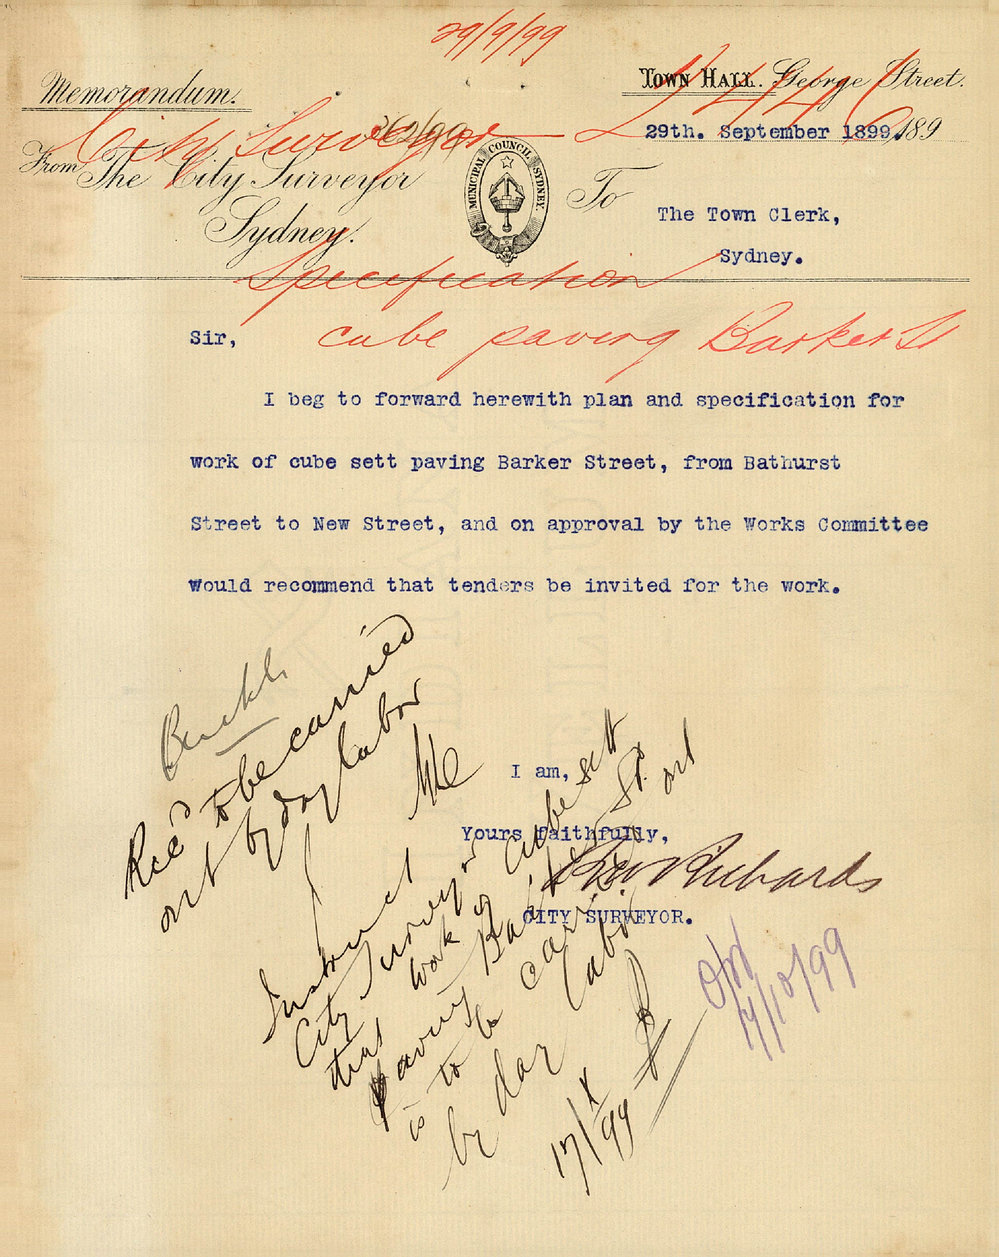 29/9/99
Memorandum.
Town Hall. George Street.
City Surveyor
29th. September 1899. 189
From The City Surveyor
Sydney.
MUNICIPAL COUNCIL SYDNEY.
To
The Town Clerk,
Sydney.
Specification
cube paving Barker St
Sir,
I beg to forward herewith plan and specification for
work of cube sett paving Barker Street, from Bathurst
Street to New Street, and on approval by the Works Committee
would recommend that tenders be invited for the work.
Recd to be carried
out by day labor
I am,
Yours faithfully,
Richards
CITY SURVEYOR.
Instruct
City Surveyor
that work of cube sett
paving Barker St.
is to be carried out
by day labor
17/X/99
17/10/99